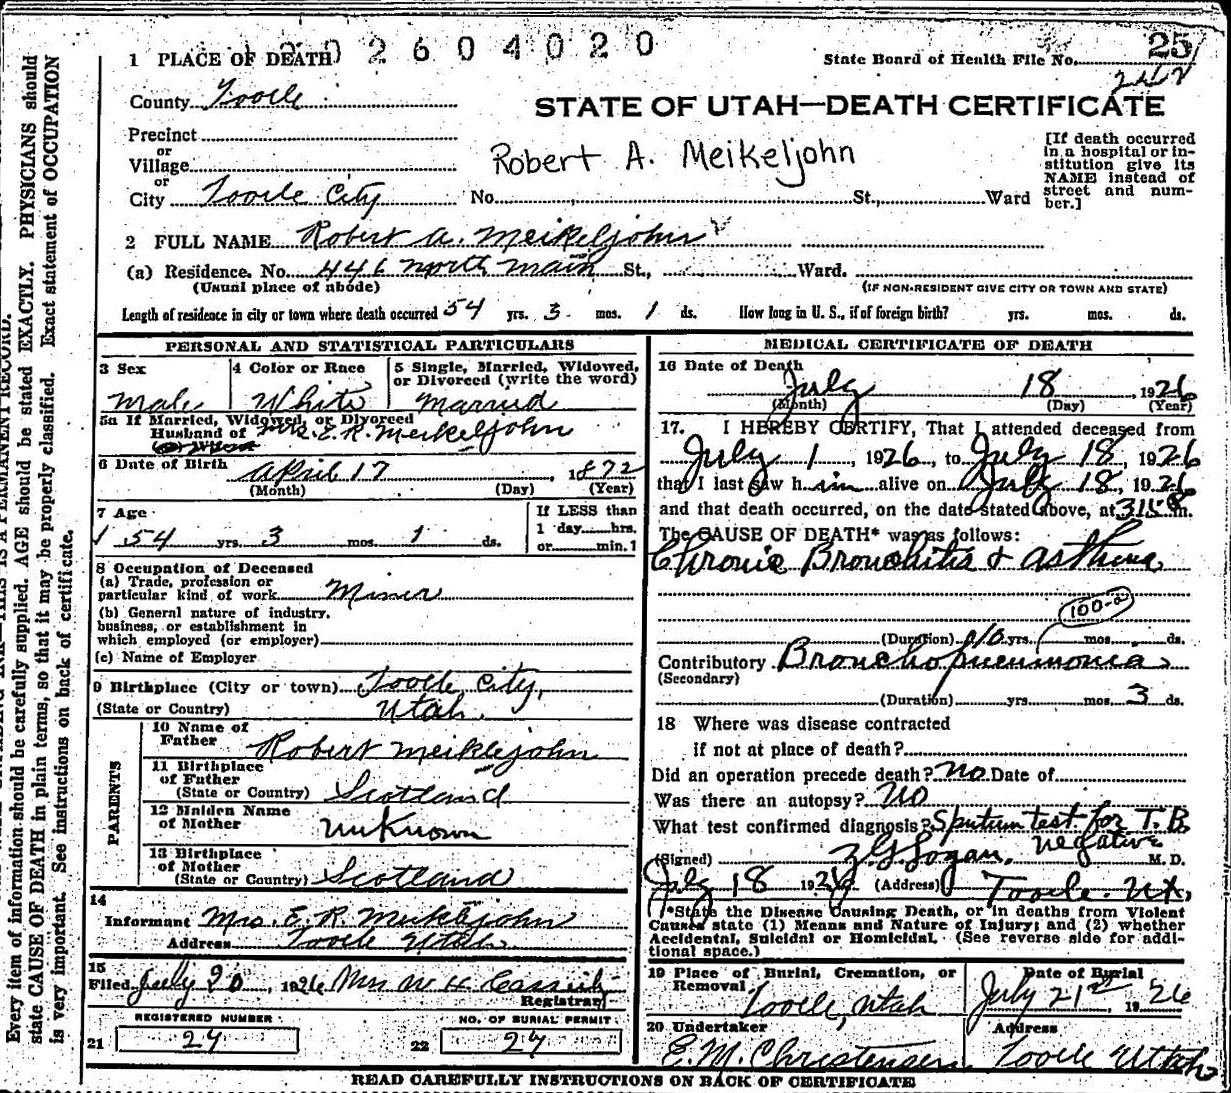 2604020
1 PLACE OF DEATH
State Board of Health File No. 25
County Tooele
STATE OF UTAH—DEATH CERTIFICATE
Precinct
or
Village
Robert A. Meikeljohn
[If death occurred in a hospital or institution give its NAME instead of street and number.]
or
City Tooele City No. St., Ward
2 FULL NAME Robert A. Meikeljohn
(a) Residence. No. 446 North Main St., Ward.
(Usual place of abode) (IF NON-RESIDENT GIVE CITY OR TOWN AND STATE)
Length of residence in city or town where death occurred 54 yrs. 3 mos. 1 ds. How long in U. S., if of foreign birth? yrs. mos. ds.
PERSONAL AND STATISTICAL PARTICULARS
3 Sex 4 Color or Race 5 Single, Married, Widowed, or Divorced (write the word)
Male White Married
5a If Married, Widowed, or Divorced
Husband of Mrs. E. R. Meikeljohn
6 Date of Birth April 17 1872
(Month) (Day) (Year)
7 Age If LESS than
54 yrs. 3 mos. 1 ds. 1 day hrs.
or min.
8 Occupation of Deceased
(a) Trade, profession or
particular kind of work Miner
(b) General nature of industry,
business, or establishment in
which employed (or employer)
(c) Name of Employer
9 Birthplace (City or town) Tooele City,
(State or Country) Utah.
PARENTS
10 Name of
Father Robert Meiklejohn
11 Birthplace
of Father
(State or Country) Scotland
12 Maiden Name
of Mother Unknown
13 Birthplace
of Mother
(State or Country) Scotland
14
Informant Mrs. E. R. Meiklejohn
Address Tooele Utah
15
Filed July 20, 1926 Mrs W H Cassity
Registrar
REGISTERED NUMBER NO. OF BURIAL PERMIT
21 24 22 24
MEDICAL CERTIFICATE OF DEATH
16 Date of Death
July 18, 1926
(Month) (Day) (Year)
17. I HEREBY CERTIFY, That I attended deceased from
July 1, 1926, to July 18, 1926
that I last saw him alive on July 18, 1926
and that death occurred, on the date stated above, at m.
The CAUSE OF DEATH* was as follows:
Chronic Bronchitis & Asthma
100-a
(Duration) 10 yrs. mos. ds.
Contributory Bronchopneumonia
(Secondary)
(Duration) yrs. mos. 3 ds.
18 Where was disease contracted
if not at place of death?
Did an operation precede death? No Date of
Was there an autopsy? No
What test confirmed diagnosis? Sputum test for T.B.
negative
(Signed) M. D.
July 18 1926 (Address) Tooele. Ut.
(*State the Disease Causing Death, or in deaths from Violent
Causes state (1) Means and Nature of Injury; and (2) whether
Accidental, Suicidal or Homicidal. (See reverse side for addi-
tional space.)
19 Place of Burial, Cremation, or Date of Burial
Removal
Tooele, Utah July 21st 1926
20 Undertaker Address
E. M. Christensen Tooele Utah
READ CAREFULLY INSTRUCTIONS ON BACK OF CERTIFICATE
Every item of information should be carefully supplied. AGE should be stated EXACTLY. PHYSICIANS should
state CAUSE OF DEATH in plain terms, so that it may be properly classified. Exact statement of OCCUPATION
is very important. See instructions on back of certificate.